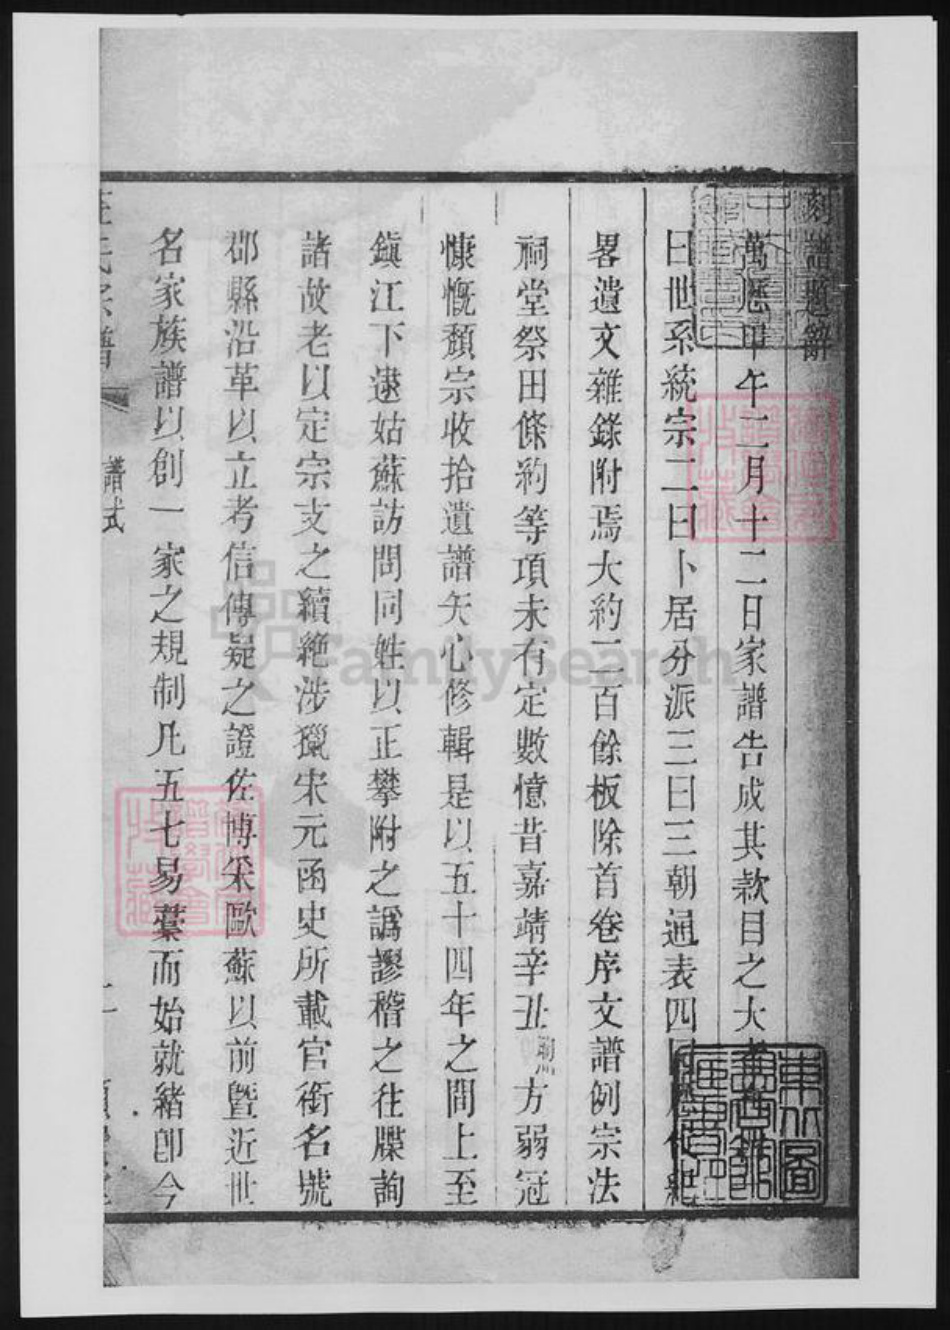 刻譜題辭
萬曆甲午二月十二日家譜告成其款目之大
曰世系統宗二曰卜居分派三曰三朝通表四曰歷代紀
畧遺文雜錄附焉大約二百餘板除首卷序文譜例宗法
祠堂祭田條約等項未有定數憶昔嘉靖辛丑 方弱冠
慷慨頹宗收拾遺譜矢心修輯是以五十四年之間上至
鎮江下逮姑蘇訪問同姓以正攀附之譌謬稽之往牒詢
諸故老以定宗支之續絶涉獵宋元函史所載官銜名號
郡縣沿革以立考信傳疑之證佐博采歐蘇以前暨近世
名家族譜以創一家之規制凡五七易藁而始就緒卽今
氏宗譜 譜式
FamilySearch